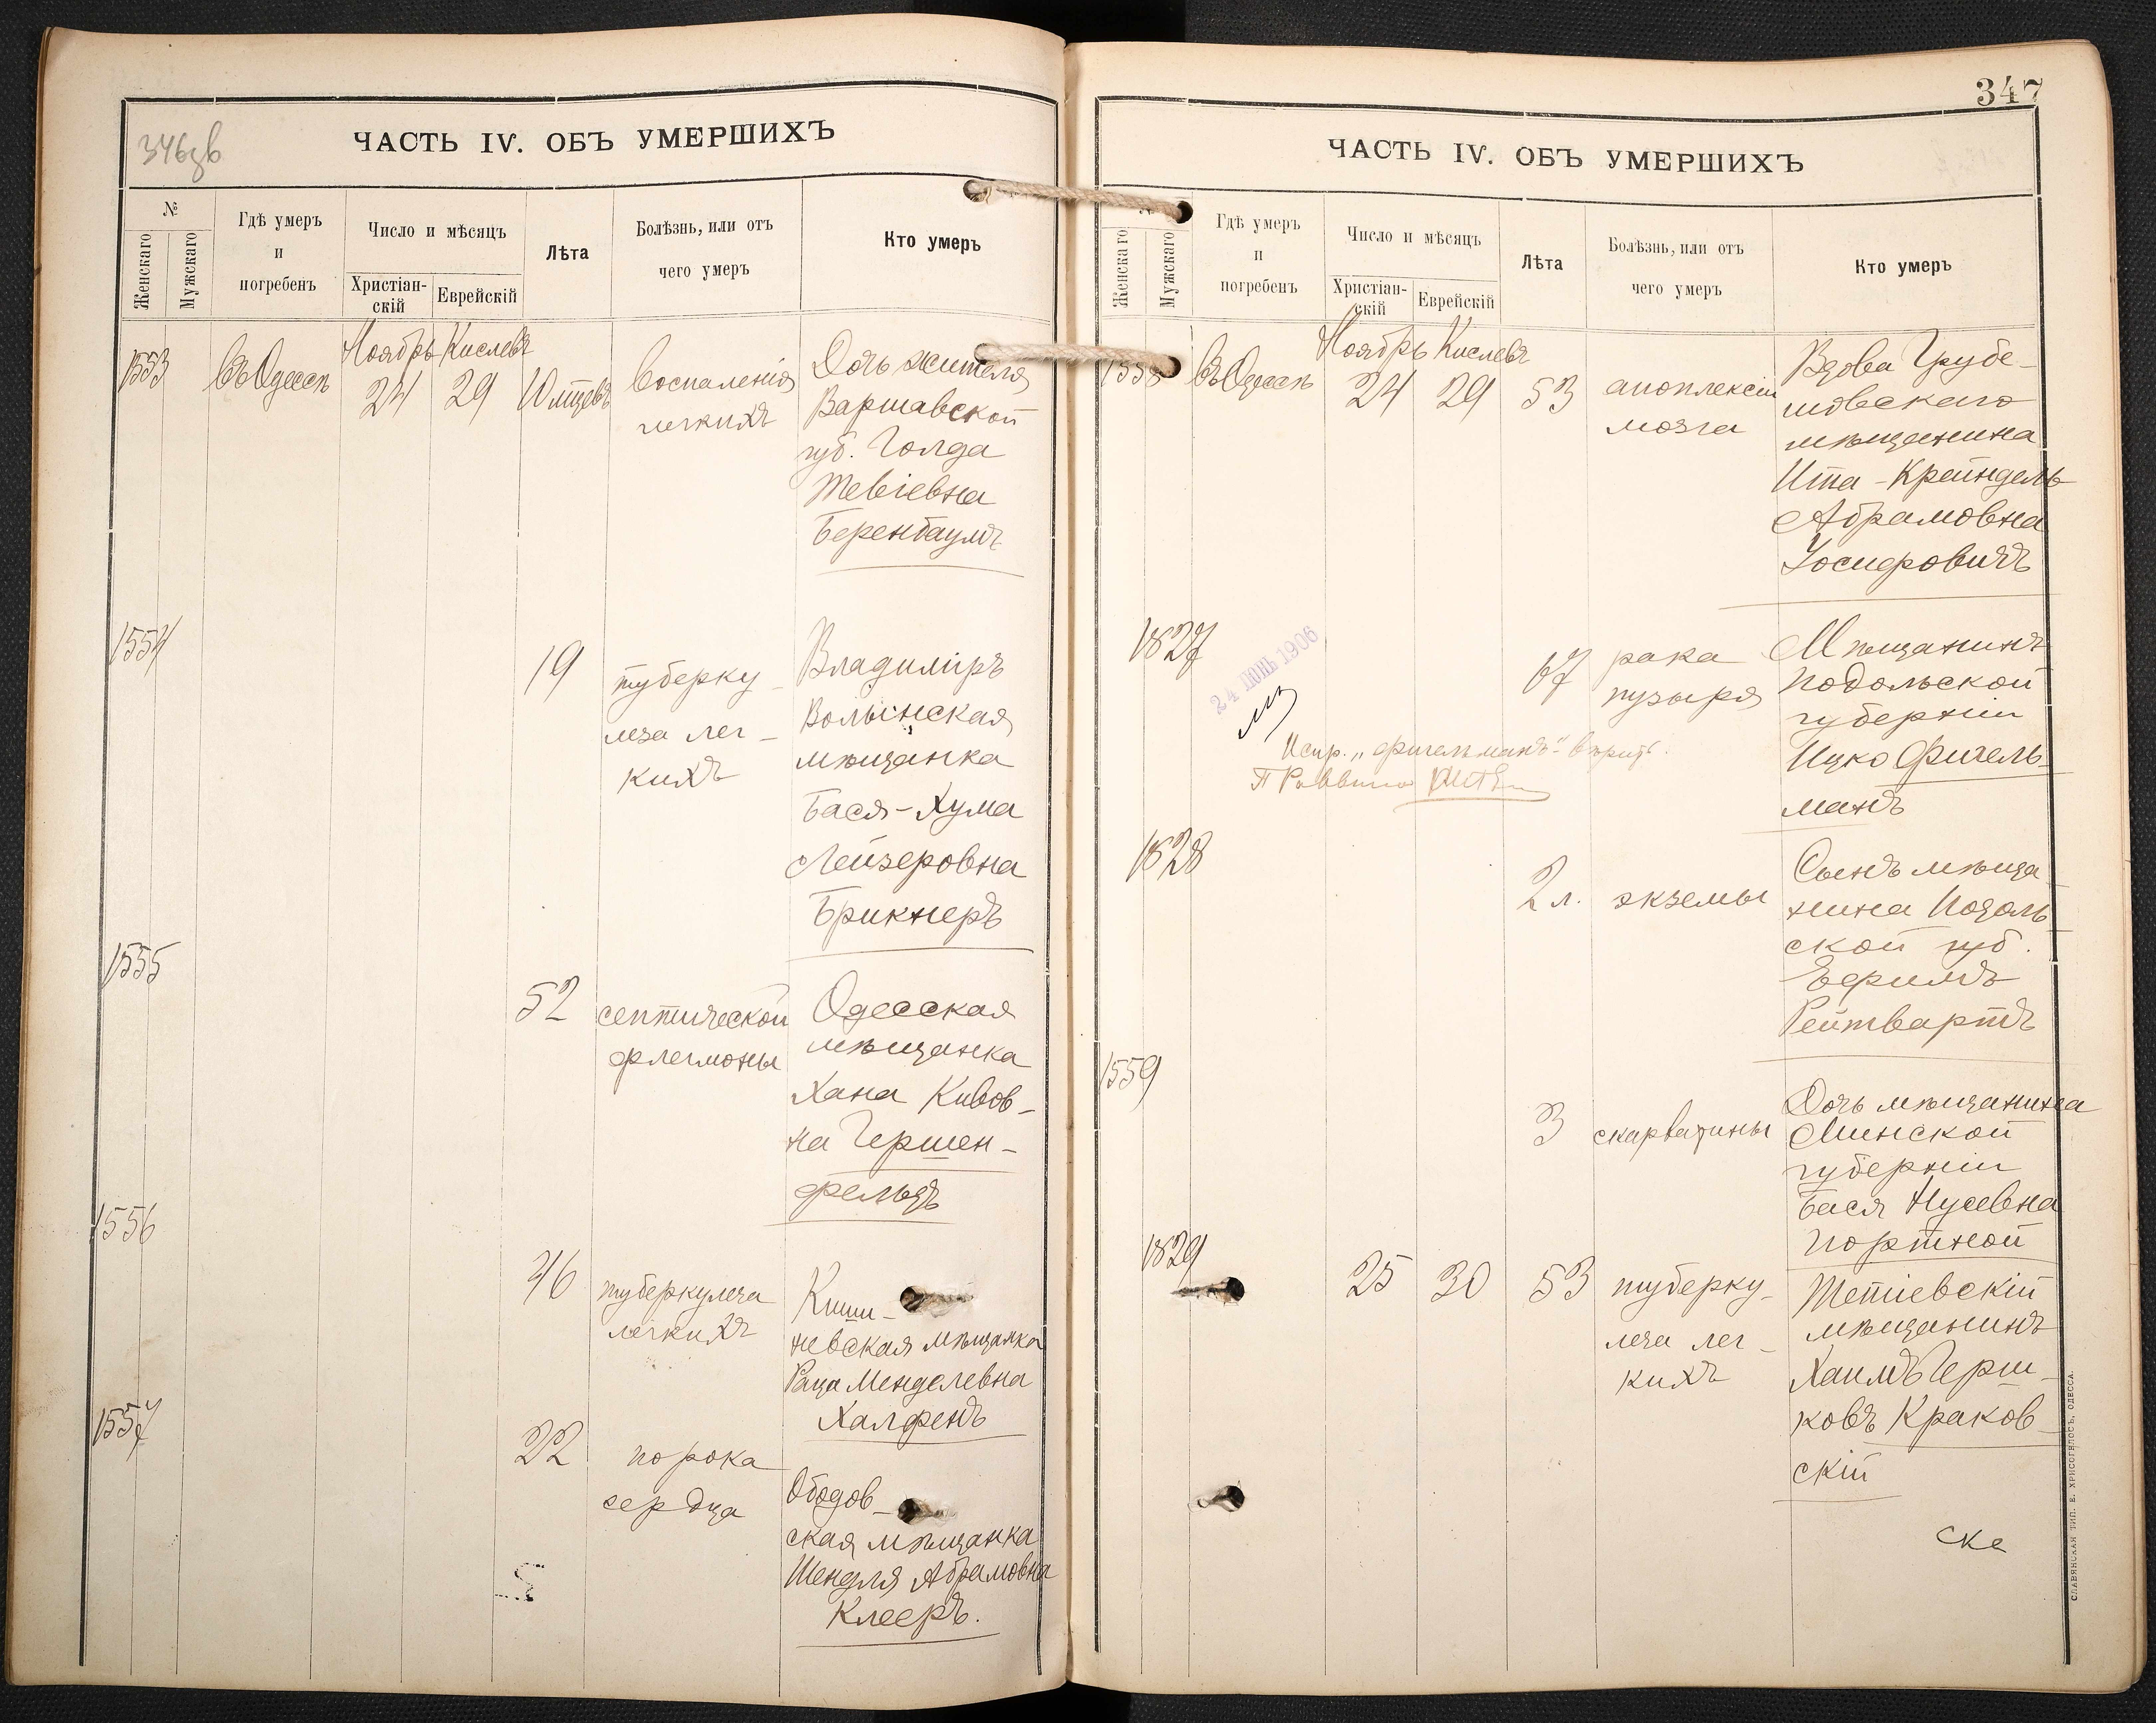 346зв
ЧАСТЬ IV. ОБЪ УМЕРШИХЪ
№
Женскаго
Мужскаго
Гдѣ умеръ
и
погребенъ
Число и мѣсяцъ
Христіан-
скій
Еврейскій
Лѣта
Болѣзнь, или отъ
чего умеръ
Кто умеръ
1553
Въ Одессѣ
Ноябрь Кислевъ
24 29
10 мѣсяцевъ
воспаленія
легкихъ
Дочь жителя
Варшавской
губ. Голда
Тевіевна
Беренбаумъ
1554
19
туберку-
леза лег-
кихъ
Владиміръ
Волынская
мѣщанка
Бася-Хума
Лейзеровна
Брикнеръ
1555
52
септической
флегмоны
Одесская
мѣщанка
Хана Кивов-
на Гершен-
фельдъ
1556
46
туберкулеза
легкихъ
Киши-
невская мѣщанка
Рація Менделевна
Халфенъ
1557
22
порока
сердца
Ободов-
ская мѣщанка
Шендля Абрамовна
Клееръ.
347
ЧАСТЬ IV. ОБЪ УМЕРШИХЪ
№
Женскаго
Мужскаго
Гдѣ умеръ
и
погребенъ
Число и мѣсяцъ
Христіан-
скій
Еврейскій
Лѣта
Болѣзнь, или отъ
чего умеръ
Кто умеръ
1558
Въ Одессѣ
Ноябрь Кислевъ
24 29
53
апоплексіи
мозга
Вдова Грубе-
шовскаго
мѣщанина
Ита-Крейндель
Абрамовна
Іосифовичъ
1827
24 ІЮНЬ 1906
67
рака
пузыря
Мѣщанинъ
Подольской
губерніи
Ицко Фигель-
манъ
Испр. „Фигельманъ" вѣрить.
Раввинъ
1828
2 л.
экземы
Сынъ мѣща-
нина Подоль-
ской губ.
Ефримъ
Рейтвартъ
1559
3
скарлатины
Дочь мѣщанина
Минской
губерніи
Бася Нусевна
Портной
1829
25 30
53
туберку-
леза лег-
кихъ
Тетіевскій
мѣщанинъ
Хаимъ Герш-
ковъ Краков-
скій
ска
СЛАВЯНСКАЯ ТИП. Е. ХРИСОГЕЛОСЪ, ОДЕССА.